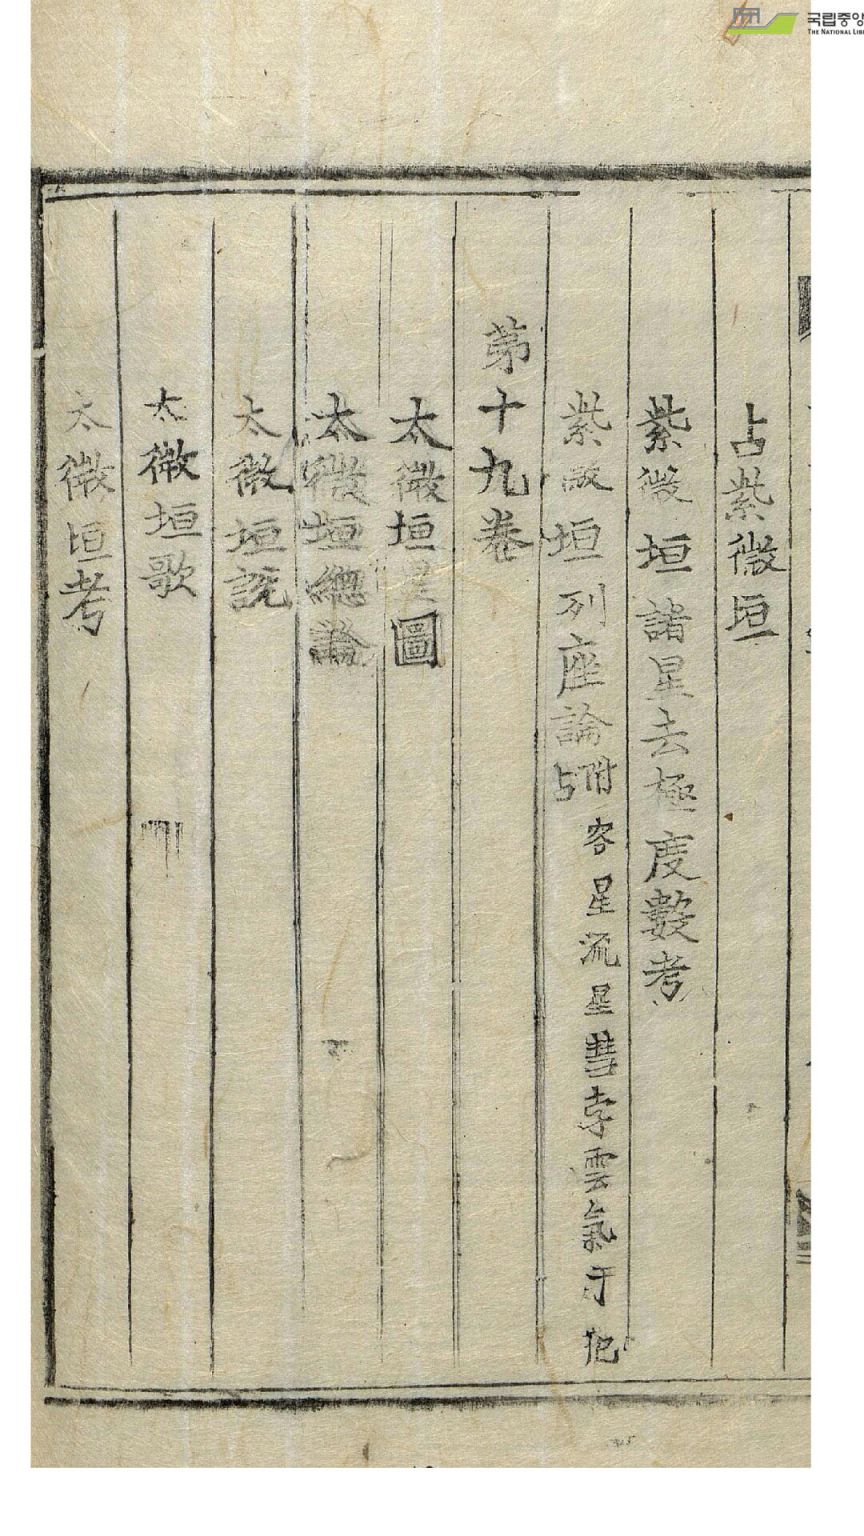 국립중앙
THE NATIONAL LIB
占紫微垣
紫微垣諸星去極度數考
紫微垣列座論附客星流星彗孛雲氣干犯占
第十九卷
太微垣星圖
太微垣總論
太微垣說
太微垣歌
太微垣考